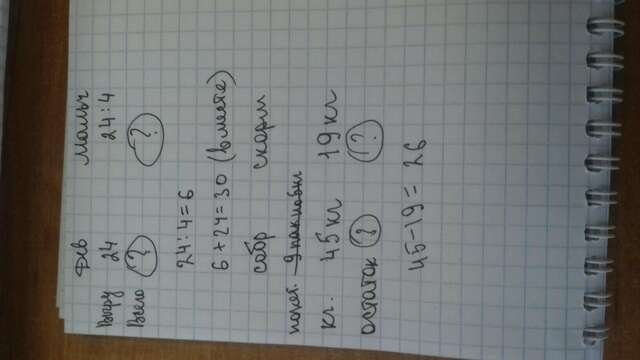 Дев Мальч
Выру 24 24:4
Всего ? ?
24:4=6
6+24=30 (вместе)
собр скорм
кг. 45кг 19кг
остаток ? ?
45-19=26